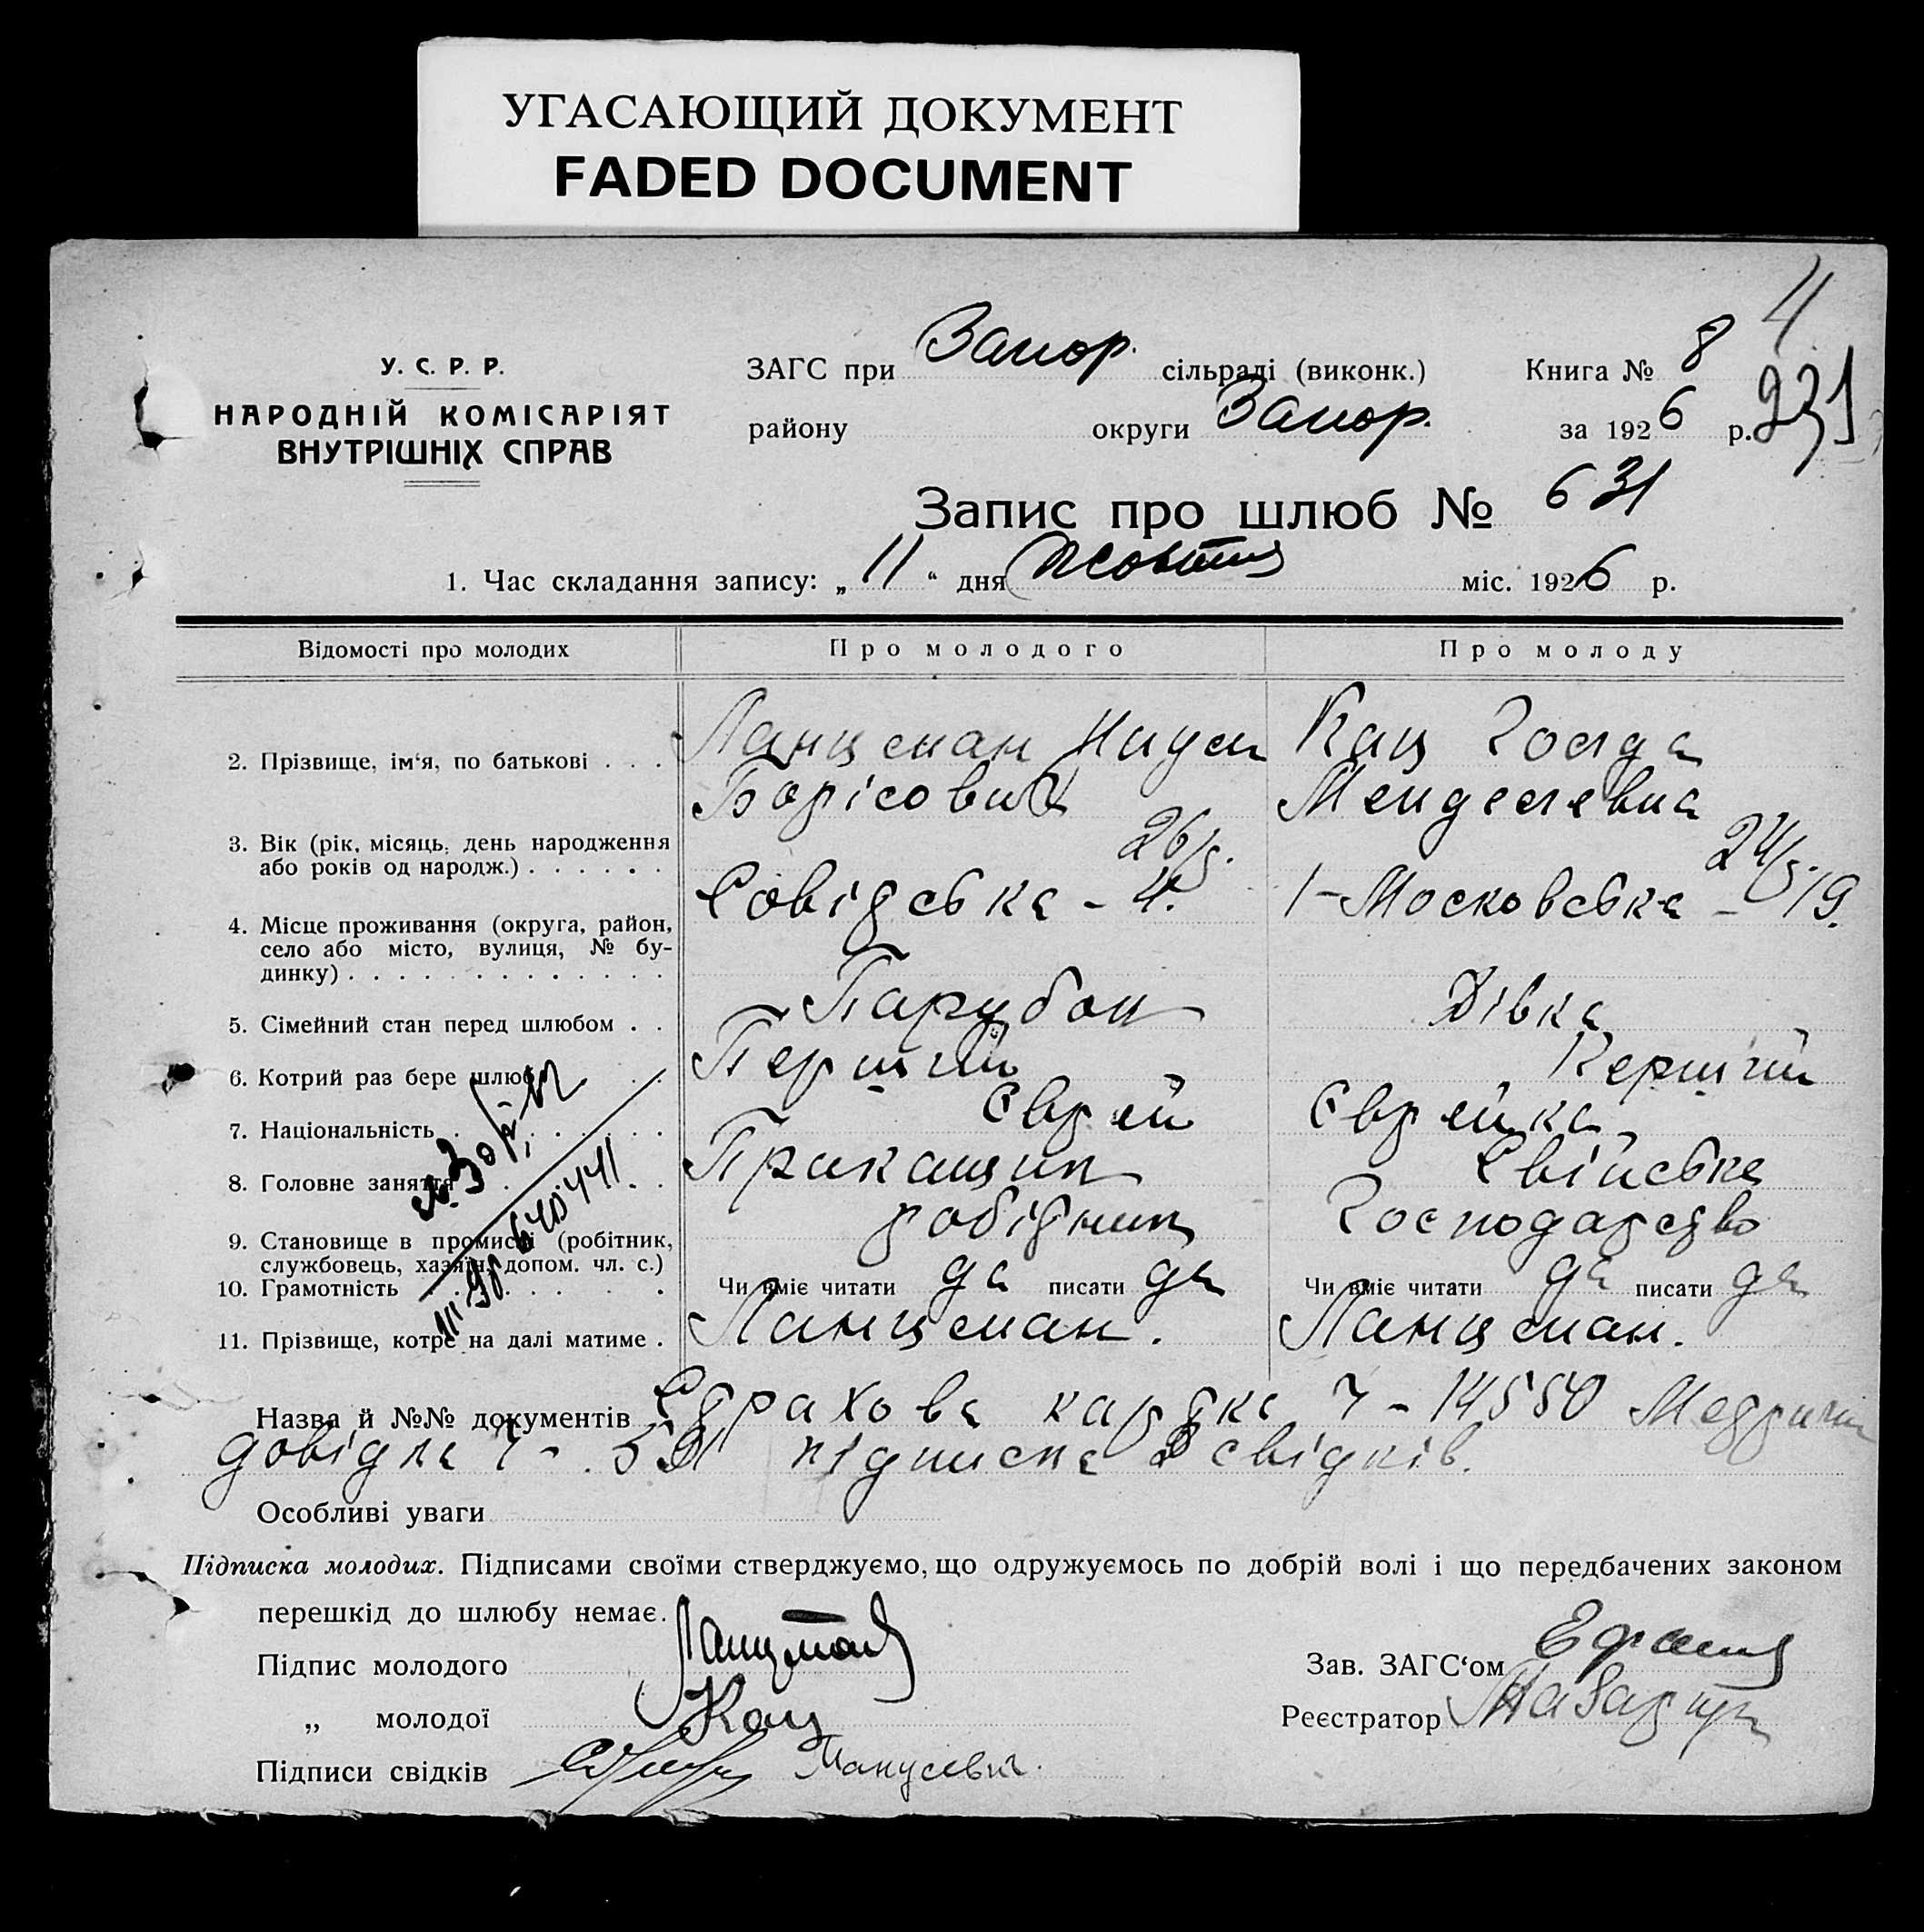 УГАСАЮЩИЙ ДОКУМЕНТ
FADED DOCUMENT
4
У. С. Р. Р.
НАРОДНІЙ КОМІСАРІЯТ
ВНУТРІШНІХ СПРАВ
ЗАГС при Запор. сільраді (виконк.) Книга № 8
району округи Запор. за 1926 р. 231
Запис про шлюб № 631
1. Час складання запису: „ 11 “ дня Жовтня міс. 1926 р.
Відомості про молодих Про молодого Про молоду
2. Прізвище, ім‘я, по батькові . . . Ланцман Наум Кац Голда
Борісович Менделевна
3. Вік (рік, місяць, день народження
або років од народж.) . . . . . . 26 р. 24 р.
4. Місце проживання (округа, район,
село або місто, вулиця, № бу-
динку) . . . . . . . . . . . . . Совідська - 4. 1-Московська - 19.
5. Сімейний стан перед шлюбом . . Парубок Дівка
6. Котрий раз бере шлюб . . Перший Перший
7. Національність . . . . . . . . Єврей Єврейка
8. Головне заняття . . . . . Прикащик Свійське
9. Становище в промислі (робітник,
службовець, хазяїн, допом. чл. с.) робідник Господарсдво
10. Грамотність . . . . . . Чи вміє читати да писати да Чи вміє читати да писати да
11. Прізвище, котре на далі матиме . Ланцман. Ланцман.
Назва й №№ документів Страхова картка 14550
довідка підписка 2 свідків.
Особливі уваги
Підписка молодих. Підписами своїми стверджуємо, що одружуємось по добрій волі і що передбачених законом
перешкід до шлюбу немає.
Підпис молодого Ланцман Зав. ЗАГС‘ом
„ молодої Кац Реєстратор
Підписи свідків